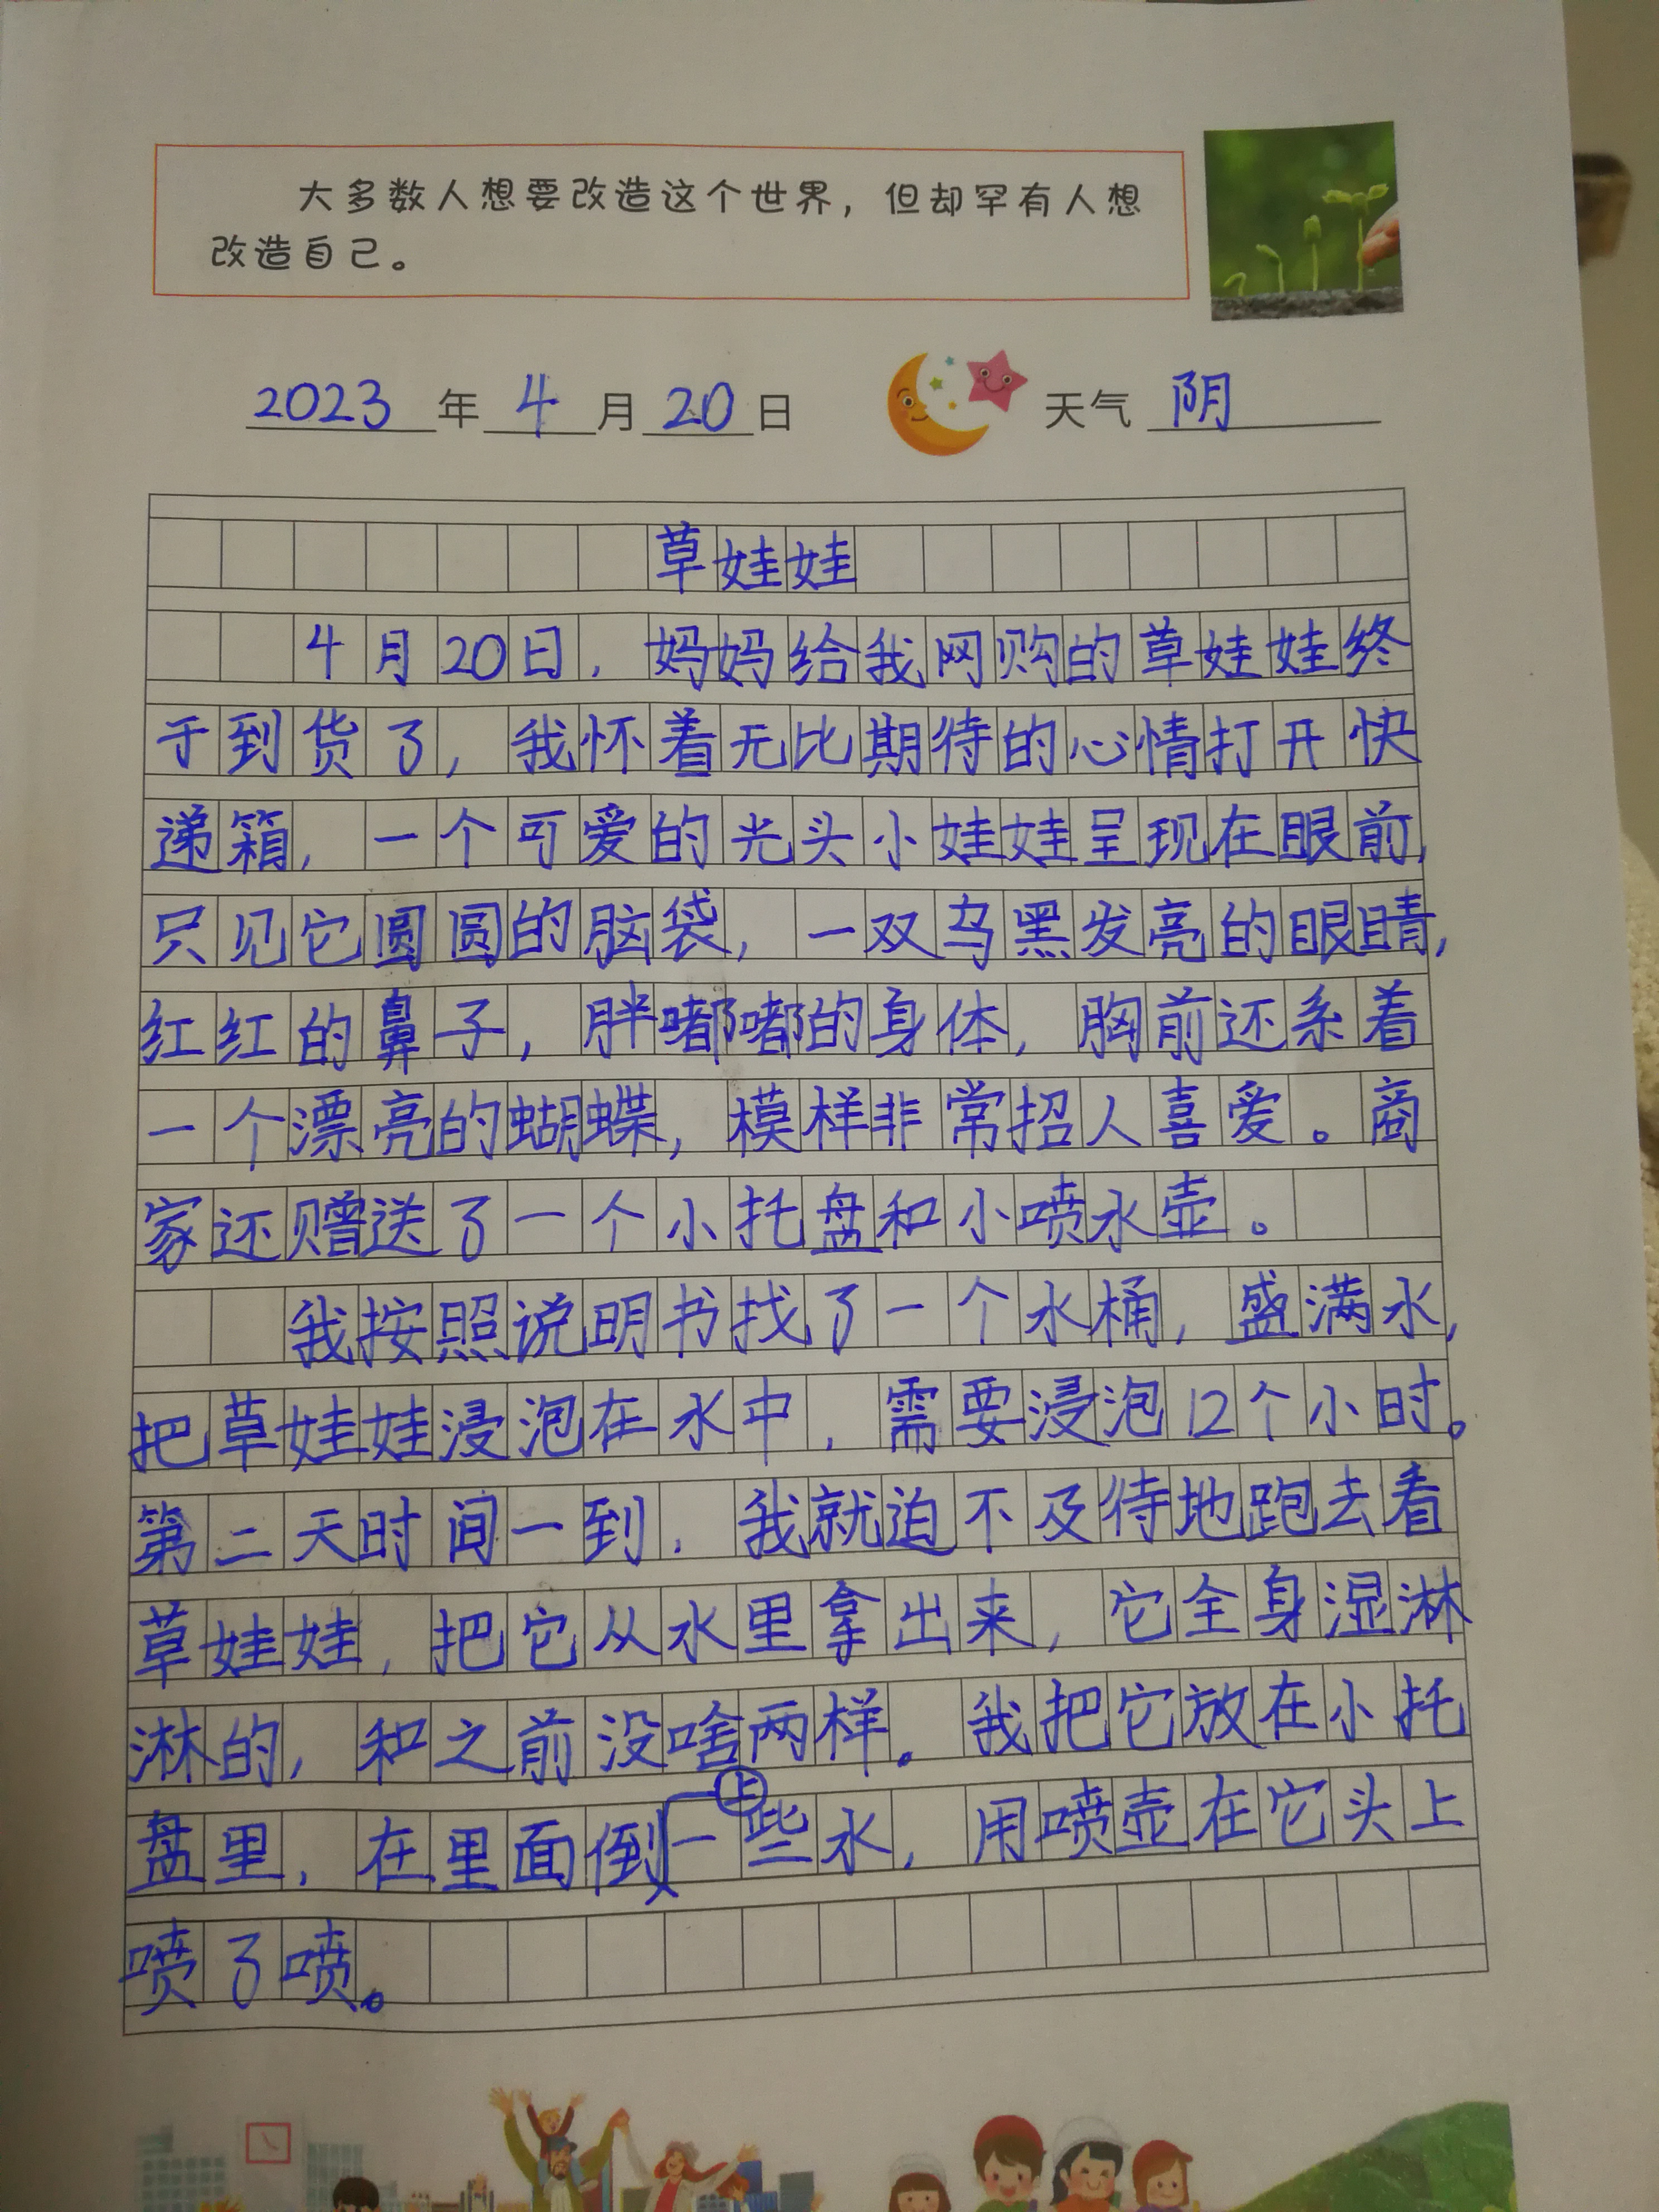 大多数人想要改造这个世界，但却罕有人想
改造自己。
2023年4月20日 天气 阴
草娃娃
4月20日，妈妈给我网购的草娃娃终
于到货了，我怀着无比期待的心情打开快
递箱，一个可爱的光头小娃娃呈现在眼前，
只见它圆圆的脑袋，一双乌黑发亮的眼睛，
红红的鼻子，胖嘟嘟的身体，胸前还系着
一个漂亮的蝴蝶，模样非常招人喜爱。商
家还赠送了一个小托盘和小喷水壶。
我按照说明书找了一个水桶，盛满水，
把草娃娃浸泡在水中，需要浸泡12个小时。
第二天时间一到，我就迫不及待地跑去看
草娃娃，把它从水里拿出来，它全身湿淋
淋的，和之前没啥两样。我把它放在小托
盘里，在里面倒上一些水，用喷壶在它头上
喷了喷。